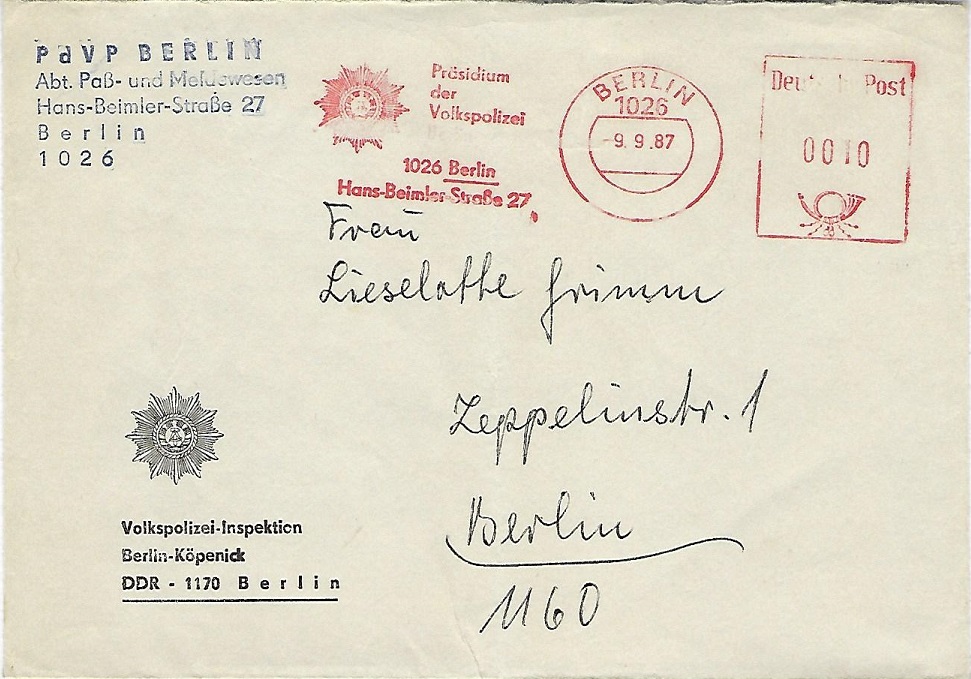 PdVP BERLIN
Abt. Paß- und Meldewesen
Hans-Beimler-Straße 27
Berlin
1026
Präsidium
der
Volkspolizei
1026 Berlin
Hans-Beimler-Straße 27
BERLIN
1026
-9.9.87
Deutsche Post
0010
Frau
Lieselotte Grimm
Zeppelinstr. 1
Berlin
1160
Volkspolizei-Inspektion
Berlin-Köpenick
DDR - 1170 Berlin